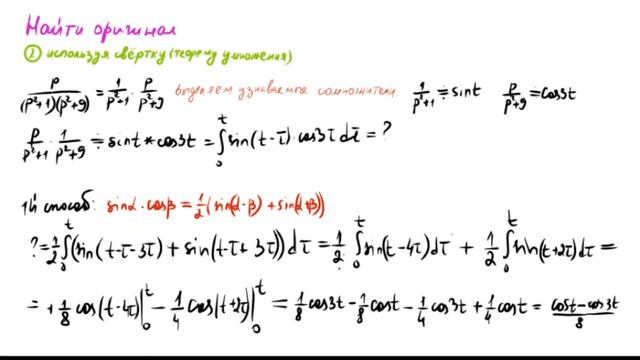 Найти оригинал
② используя свёртку (теорему умножения)
p/((p²+1)(p²+9)) = 1/(p²+1) · p/(p²+9) выделяем узнаваемые сомножители 1/(p²+1) ≓ sint p/(p²+9) ≓ cos3t
p/(p²+1) · 1/(p²+9) ≓ sint * cos3t = ∫₀ᵗ sin(t-τ) cos3τ dτ = ?
1й способ: sinα · cosβ = 1/2 (sin(α-β) + sin(α+β))
? = 1/2 ∫₀ᵗ (sin(t-τ-3τ) + sin(t-τ+3τ)) dτ = 1/2 ∫₀ᵗ sin(t-4τ)dτ + 1/2 ∫₀ᵗ sin(t+2τ)dτ =
= +1/8 cos(t-4τ)|₀ᵗ - 1/4 cos(t+2τ)|₀ᵗ = 1/8 cos3t - 1/8 cost - 1/4 cos3t + 1/4 cost = (cost-cos3t)/8